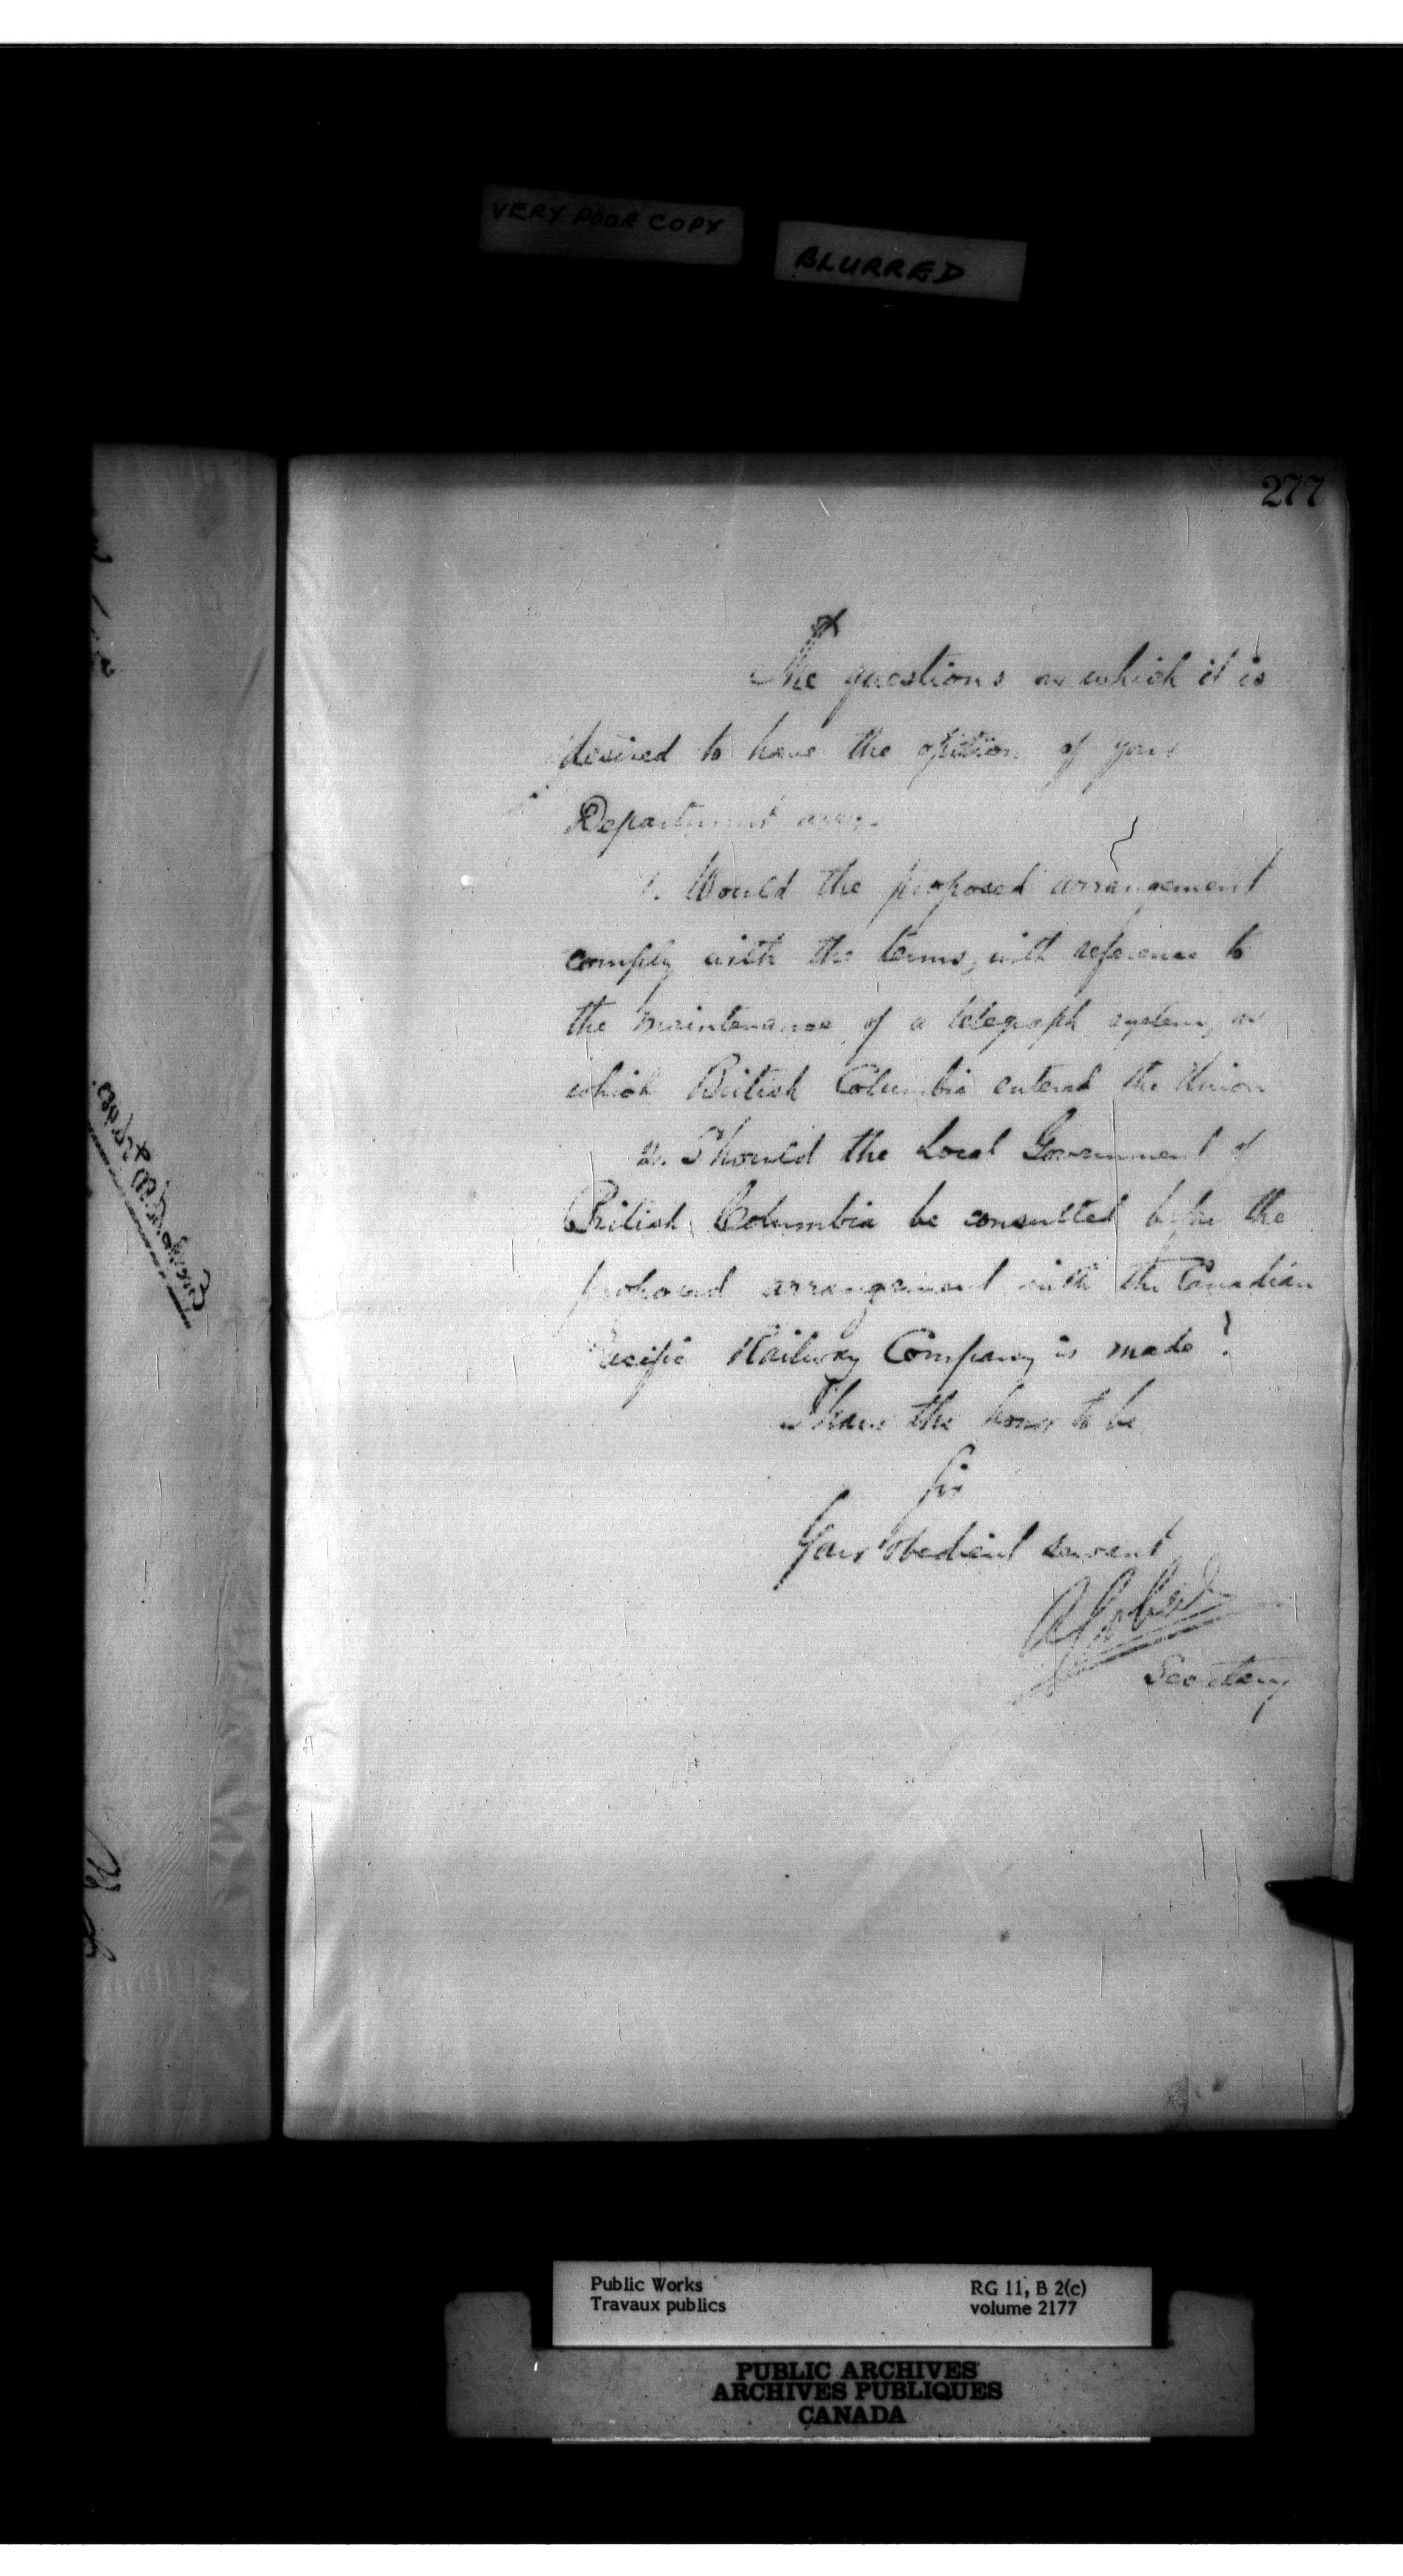 VERY POOR COPY
BLURRED
277
The questions on which it is
desired to have the opinion of your
Department are:-
1. Would the proposed arrangement
comply with the terms, with reference to
the maintenance of a telegraph system, on
which British Columbia entered the Union
2. Should the Local Government of
British Columbia be consulted before the
proposed arrangement with the Canadian
Pacific Railway Company is made?
I have the honor to be
Sir
Your obedient servant
A Gobeil
Secretary
Public Works
Travaux publics
RG 11, B 2(c)
volume 2177
PUBLIC ARCHIVES
ARCHIVES PUBLIQUES
CANADA